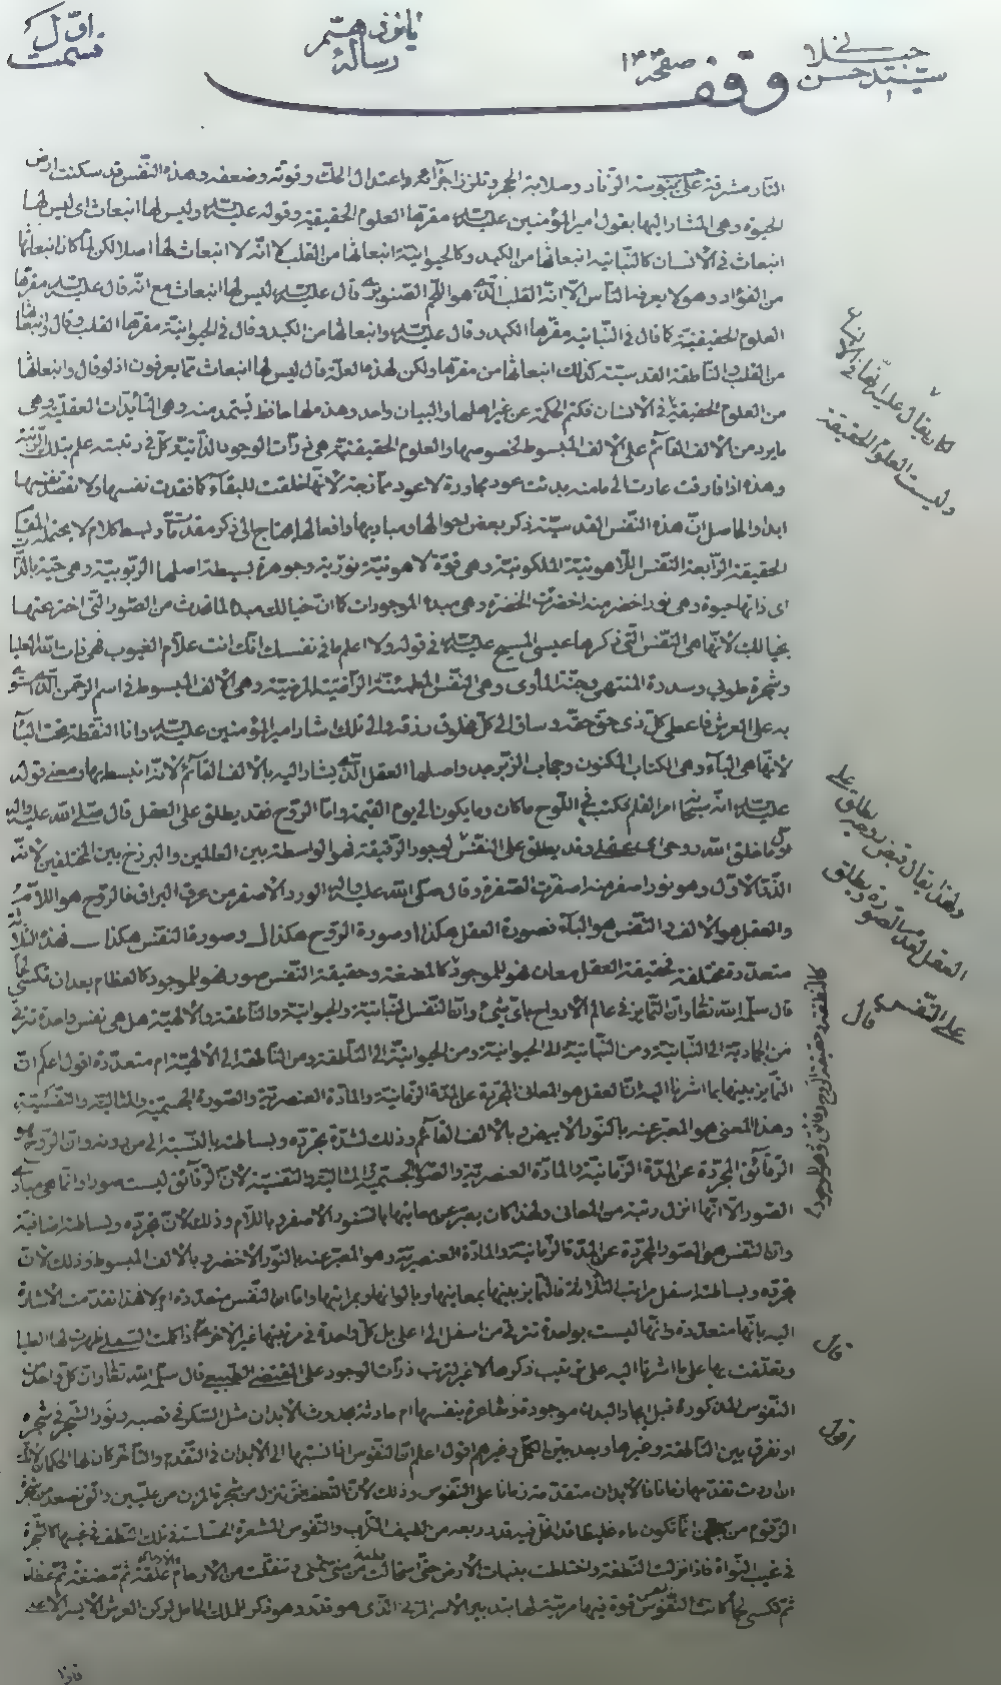 اوّل
قسمت
پانزدهم
رسالهٔ
صفحه
سیّد حسن
وقف
النار مشرقة على يبوسة الرماد وصلابة الحجر وتلزز اجزائه واعتدال الحل وقوته وضعفه وهذه النّفس قد سكنت ارض
الحيوة وهى المشار اليها بقول امير المؤمنين عليه السلام مقرّها العلوم الحقيقية وقوله عليه السلام وليس لها انبعاث اى ليس لها
انبعاث فى الانسان كالنّباتية انبعاثها من الكبد وكالحيوانية انبعاثها من القلب لا انّه لا انبعاث لها اصلا لكن لما كان انبعاثها
من الفؤاد وهو لا يعرفه النّاس الا انّه القلب الّذى هو اللّحم الصّنوبرى قال عليه السلام ليس لها انبعاث مع انّه قال عليه السلام مقرّها
العلوم الحقيقيّة كما قال فى النّباتية مقرّها الكبد وقال عليه السلام وانبعاثها من الكبد وقال فى الحيوانيّة مقرّها القلب وقال وانبعاثها
من القلب والنّاطقة القدسيّة كذلك انبعاثها من مقرّها ولكن لهذه العلّة قال ليس لها انبعاث ممّا يعرفون اذ لو قال وانبعاثها
من العلوم الحقيقيّة فى الانسان فكتم الحكمة عن غير اهلها والبيان واحد وهذه لها حافظ تستمد منه وهى التأييدات العقليّة وهى
ما يرد من الالف القائم على الالف المبسوط لخصوصها والعلوم الحقيقيّة هى ذرّات الوجود الذّاتية كلّ فى رتبته علم بتلك الرّتبة
وهذه اذا فارقت عادت الى ما منه بدئت عود مجاورة لا عود ممازجة لانّها خلقت للبقاء كما فقدت نفسها ولا تفقد نفسها
ابدا والحاصل انّ هذه النّفس القدسيّة ذكر بعض احوالها ومباديها وافعالها يحتاج الى ذكر مقدّمات وبسط كلام لا يحتمله المقام
الحقيقة الرّابعة النّفس اللّاهوتيّة الملكوتيّة وهى قوّة لاهوتيّة نوريّة وجوهرة بسيطة اصلها الرّبوبيّة وهى حيّة بالذّات
اى ذاتها حيوة وهى نور اخضر منه اخضرّت الخضرة وهى مبدء الموجودات كما انّ خيالك مبدء لما يحدث من الصّور الّتى اخترعتها
بخيالك لانّها هى النّفس الّتى ذكرها عيسى المسيح عليه السلام فى قوله ولا اعلم ما فى نفسك انّك انت علّام الغيوب فهى ذات الله العليا
وشجرة طوبى وسدرة المنتهى وجنّة المأوى وهى النّفس المطمئنّة الرّاضية المرضيّة وهى الالف المبسوط فى اسم الرّحمن الّذى استوى
به على العرش فاعطى كلّ ذى حقّ حقّه وساق الى كلّ مخلوق رزقه والى تلك اشار امير المؤمنين عليه السلام وانا النّقطة تحت الباء
لانّها هى الباء وهى الكتاب المكنون وحجاب الزّبرجد واصلها العقل الّذى يشار اليه بالالف القائم لانّه انبسط بها ومعنى قوله
عليه السلام انّه سبحانه امر القلم فكتب فى اللّوح ما كان وما يكون الى يوم القيمة وامّا الرّوح فقد يطلق على العقل قال صلى الله عليه واله
اوّل ما خلق الله روحى اى عقلى وقد يطلق على النّفس لوجود الرّقيقة فهو الواسطة بين العالمين والبرزخ بين المختلفين لانّه
وهو نور اصفر منه اصفرّت الصّفرة وقال صلى الله عليه واله الورد الاصفر من عرق البراق فالرّوح هو اللّام
والعقل هو الالف والنّفس هو الباء فصورة العقل هكذا ا وصورة الرّوح هكذا ل وصورة النّفس هكذا ـب فهذه الثّلاثة
متعدّدة مختلفة فحقيقة العقل معان فهو للموجود كالمضغة وحقيقة النّفس صور فهو للموجود كالعظام بعد ان تكسى لحما
قال سلّمه الله تعالى وانّ التّمايز فى عالم الارواح باىّ شىء وانّ النّفس النّباتيّة والحيوانيّة والنّاطقة والالهيّة هل هى نفس واحدة تترقى
من الجماديّة الى النّباتية ومن النّباتيّة الى الحيوانيّة ومن الحيوانيّة الى النّاطقة ومن النّاطقة الى الالهيّة ام متعدّدة اقول اعلم انّ
التّمايز بينها بما اشرنا اليه انّ العقل هو المعانى المجرّدة عن المدّة الزّمانيّة والمادّة العنصريّة والصّورة الجسميّة والمثاليّة والنّفسيّة
وهذا المعنى هو المعبّر عنه بالنّور الابيض وبالالف القائم وذلك لشدّة تجرّده وبساطته بالنّسبة الى من دونه وانّ الرّوح هو
الرّقائق المجرّدة عن المدّة الزّمانيّة والمادّة العنصريّة والصّور الجسميّة والمثاليّة والنّفسيّة لانّ الرّقائق ليست صورا وانّما هى مبادى
الصّور الا انّها انزل رتبة من المعانى ولهذا كان يعبّر عن معاينها بالنّور الاصفر وباللّام وذلك لانّ تجرّده وبساطته اضافيّة
وانّ النّفس هو الصّور المجرّدة عن المدّة الزّمانيّة والمادّة العنصريّة وهو المعبّر عنه بالنّور الاخضر وبالالف المبسوط وذلك لانّ
تجرّده وبساطته اسفل مراتب الثّلاثة فالتّمايز بينها بمعاينها وبالوانها وبمراتبها وامّا انّ النّفس متعدّدة ام لا فهذا تقدّمت الاشارة
اليه بانّها متعدّدة وانّها ليست بواحدة تترقى من اسفل الى اعلى بل كلّ واحدة فى مرتبتها غير الاخرى فاذا كملت السّفلى ظهرت لها العليا
وتعلّقت بها على ما اشرنا اليه على ترتيب ذكرها لا غير لترتب ذرّات الوجود على المقتضى الطّبيعى قال سلّمه الله تعالى وانّ كلّ واحد من
النّفوس المذكورة قبل ايجاد البدن موجودة شاعرة بنفسها ام حادثة بحدوث الابدان مثل السّكر فى قصبه ونور الشّجر فى شجره
او نفرق بين النّاطقة وغيرها وبعد بين الكمّل وغيرهم اقول اعلم انّ النّفوس اذا نسبتها الى الابدان فى التّقدّم والتّأخّر كان لها الحكمان لانّك
ان اردت تقدّمها زمانا فالابدان متقدّمة زمانا على النّفوس وذلك لانّ النّطفة تنزل من شجرة المزن من علّيّين والّتى تصعد من شجرة
الزّقوم من سجّين انّما تكون ماء غليظا قد انحلّ فيه قدر ربعه من لطيف التّراب والنّفوس المشعرة الحسّاسة فى تلك النّطف فى غيبها كالشّجرة
فى غيب النّواة فاذا نزلت النّطفة واختلطت بنبات الارض حتّى استحالت نطفة من منىّ يمنى وتنقّلت من الارحام علقة ثمّ مضغة ثمّ عظاما
ثمّ تكسى لحما كانت النّفوس قوّة فيها مرتبة لها بتدبير الاسم الربى الّذى هو تقدر وهو ذكر للملك الحامل لركن العرش الايسر الاعلى
كما يقال عليه انّها فى الانسان
وليست العلوم الحقيقة
ولهذا يقال قبض روحه يطلق على
العقل
على النّفس
قال
قال
اقول
فاذا